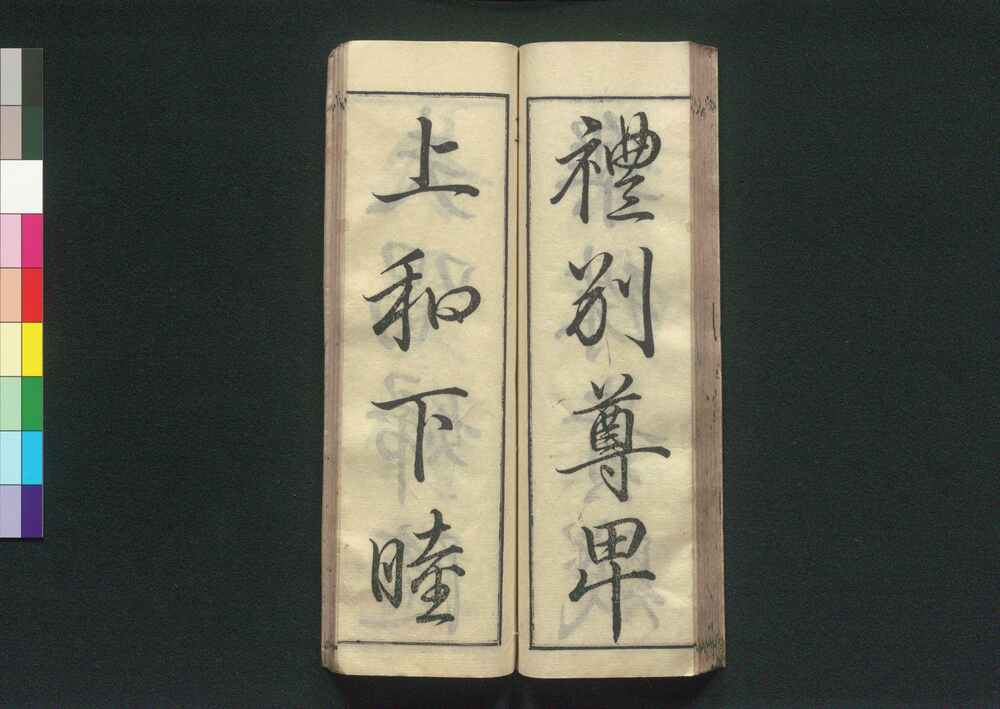 禮別尊卑
上和下睦